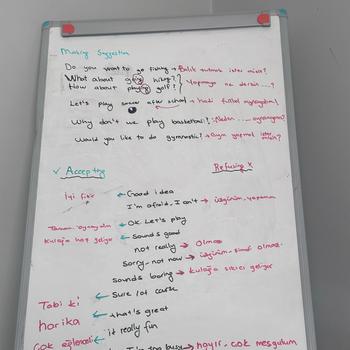 Making Suggestion
Do you want to go fishing → Balık tutmak ister misin?
What about going hiking? } Yapmaya ne dersin ...?
How about playing golf?
Let's play soccer after school → hadi futbol oynayalım!
Why don't we play basketball? → Neden .... oynamıyoruz?
Would you like to do gymnastic? → yapmak ister misin?
✓ Accepting Refusing X
İyi fikir ← Good idea
I'm afraid, I can't → üzgünüm, yapamam
Tamam oynayalım ← OK Let's play
Kulağa hoş geliyor ← Sounds good
not really → Olmaz
Sorry, not now → üzgünüm, şimdi olmaz.
sounds boring → kulağa sıkıcı geliyor
Tabi ki ← Sure / of
harika ← that's great
Çok eğlenceli ← it really fun
I'm too busy → hayır, çok meşgulum